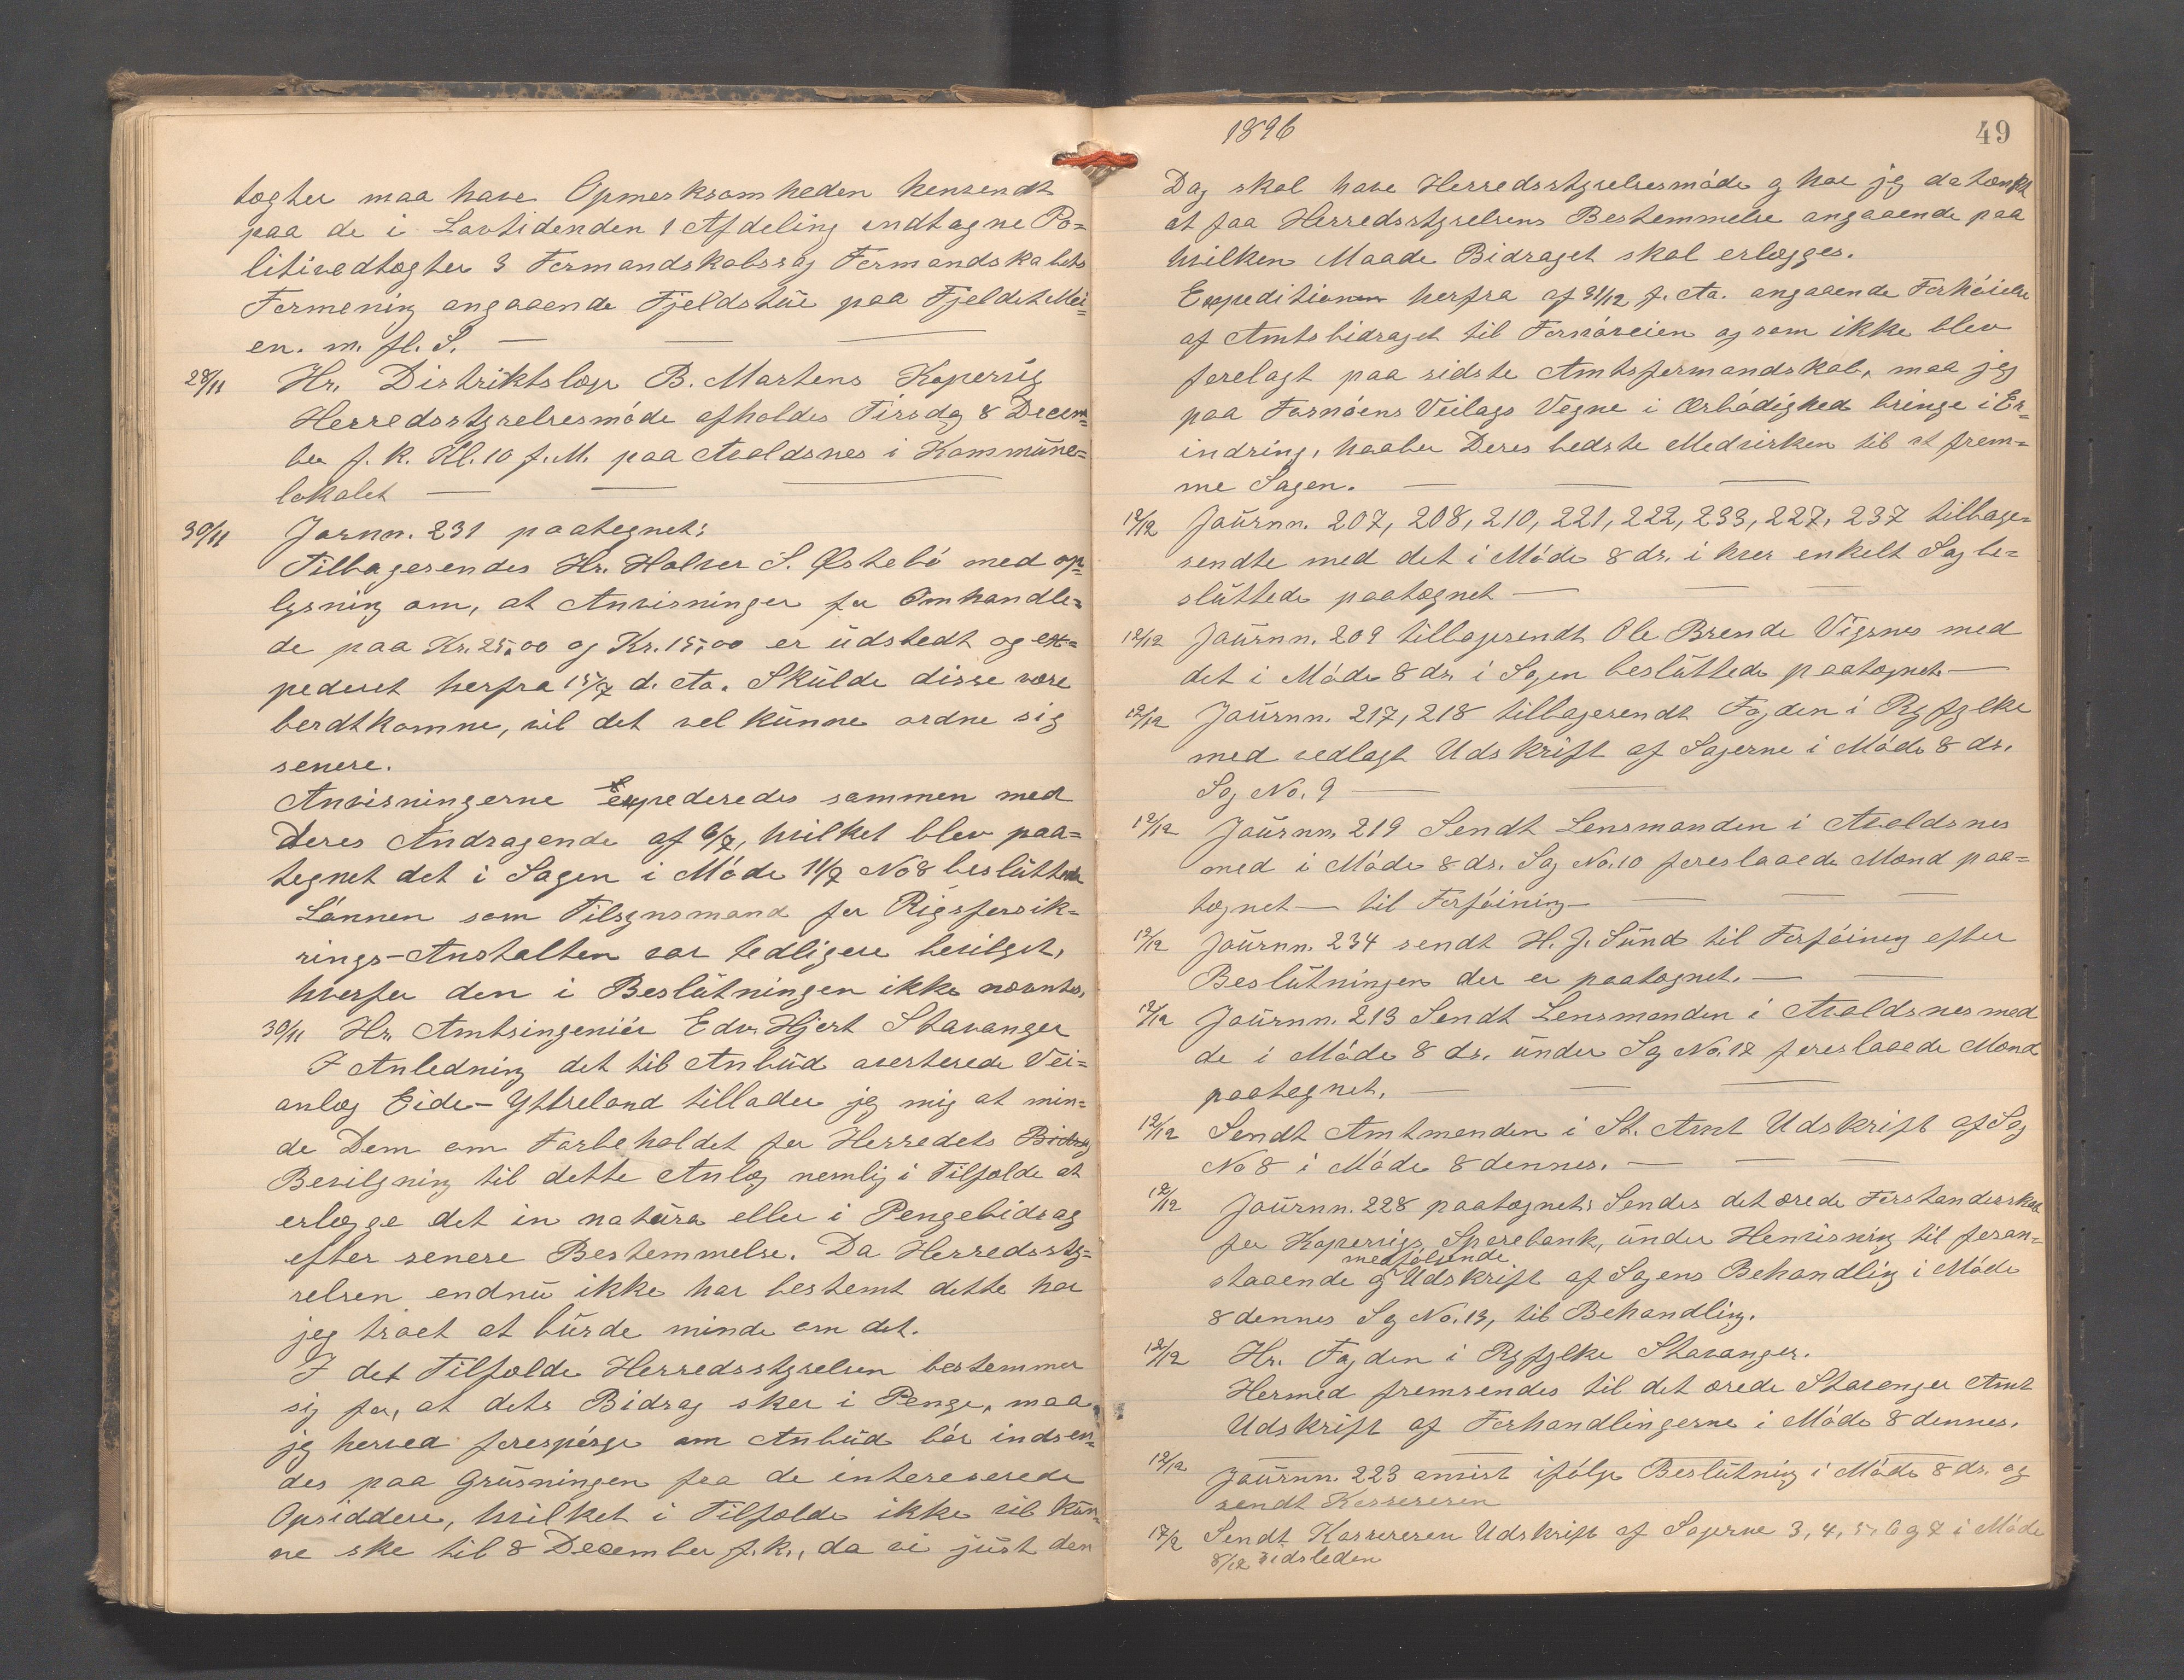 tægter maa have Opmerksomheden henvendt
paa de i Lovtidenden 1 Afdeling indtagne Po=
litivedtægter 3 Formandskabssag Formandskabets
Formening angaaende Fjeldstue paa Fjeldet Mei=
en. m. fl. S. — — —
28/11 Hr. Distriktslæge B. Martens Kopervig
Herredsstyrelsesmöde afholdes Tirsdag 8 Decem=
ber f. k. Kl. 10 f. M. paa Avaldsnes i Kommune=
lokalet — — —
30/11 Jornn. 231 paategnet:
Tilbagesendes Hr. Halvor S. Østebö med op=
lysning om, at Anvisninger for Omhandle=
de paa Kr. 25,00 og Kr. 15,00 er udstedt og ex=
pederet herfra 15/7 d. Aa. Skulde disse være
bordtkomne, vil det vel kunne ordne sig
senere.
Anvisningerne Expederedes sammen med
Deres Andragende af 6/7, hvilket blev paa=
tegnet det i Sagen i Möde 11/7 No 8 besluttede
Lönnen som Tilsynsmand for Rigsforsik=
rings-Anstalten var tidligere bevilget,
hvorfor den i Beslutningen ikke nævntes.
30/11 Hr. Amtsingeniör Edv. Hjort Stavanger
I Anledning det til Anbud averterede Vei=
anlæg Eide-Yttreland tillader jeg mig at min=
de Dem om Forbeholdet for Herredets Bidrag
Bevilgning til dette Anlæg nemlig i Tilfælde at
erlægge det in natura eller i Pengebidrag
efter senere Bestemmelse. Da Herredssty=
relsen endnu ikke har bestemt dette har
jeg troet at burde minde om det.
I det Tilfælde Herredsstyrelsen bestemmer
sig for, at dets Bidrag sker i Penge, maa
jeg herved forespörge om Anbud bör indsen=
des paa Grusningen fra de interesserede
Opsiddere, hvilket i Tilfælde ikke vil kun=
ne ske til 8 December f. k., da vi just den
1896
49
Dag skal have Herredsstyrelsesmöde og har jeg da tænkt
at faa Herredsstyrelsens Bestemmelse angaaende paa
hvilken Maade Bidraget skal erlægges.
Expeditionen herfra af 31/12 f. Aa. angaaende Forhöielse
af Amtsbidraget til Fosnöveien og som ikke blev
forelagt paa sidste Amtsformandskab, maa jeg
paa Fosnöens Veilags Vegne i Ærbödighed bringe i Er=
indring, haaber Deres bedste Medvirken til at frem=
me Sagen. — — —
12/12 Journn. 207, 208, 210, 221, 222, 233, 227, 237 tilbage=
sendte med det i Möde 8 ds. i hver enkelt Sag be=
sluttede paategnet — — —
12/12 Journn. 209 tilbagesendt Ole Brende Vigsnes med
det i Möde 8 ds. i Sagen besluttede paategnet. —
12/12 Journn. 217, 218 tilbagesendt Fogden i Ryfylke
med vedlagt Udskrift af Sagerne i Möde 8 ds.
Sag No. 9 — —
12/12 Journn. 219 Sendt Lensmanden i Avaldsnes
med i Möde 8 ds. Sag No. 10 foreslaaede Mænd paa=
tegnet — til Forföining — — —
12/12 Journn. 234 sendt H. J. Sund til Forföining efter
Beslutningen der er paategnet. — —
12/12 Journn. 213 Sendt Lensmanden i Avaldsnes med
de i Möde 8 ds. under Sag No. 12 foreslaaede Mænd
paategnet. — — —
12/12 Sendt Amtmanden i St. Amt Udskrift af Sag
No 8 i Möde 8 dennes. — — —
12/12 Journn. 228 paategnet: Sendes det ærede Forstanderskab
for Kopervigs Sparebank, under Henvisning til foran=
medfölgende
staaende og Udskrift af Sagens Behandling i Möde
8 dennes Sag No. 13, til Behandling.
12/12 Hr. Fogden i Ryfylke Stavanger.
Hermed fremsendes til det ærede Stavanger Amt
Udskrift af Forhandlingerne i Möde 8 dennes.
12/12 Journn. 223 anvist ifölge Beslutning i Möde 8 ds. og
sendt Kassereren
17/12 Sendt Kassereren Udskrift af Sagerne 3, 4, 5, 6 og 7 i Möde
8/12 sidsleden